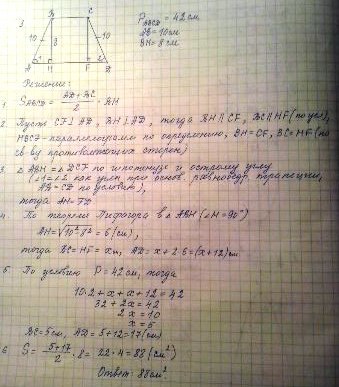 3.
B C
10 10
8
A H F D
P ABCD = 42 см
AB = 10 см
BH = 8 см
Решение:
1. S ABCD = (AD + BC)/2 · BH
2. Пусть CF ⊥ AD, BH ⊥ AD, тогда BH ∥ CF, BC ∥ HF (по усл),
HBCF - параллелограмм по определению, BH = CF, BC = HF (по
св-ву противолежащих сторон)
3. △ABH = △DCF по гипотенузе и острому углу
(∠1 = ∠2 как углы при основ. равнобедр. трапеции,
AB = CD по условию),
тогда AH = FD
4. По теореме Пифагора в △ABH (∠H = 90°)
AH = √10²-8² = 6 (см),
тогда BC = HF = x см, AD = x + 2·6 = (x+12) см
5. По условию P = 42 см, тогда
10·2 + x + x + 12 = 42
32 + 2x = 42
2x = 10
x = 5
BC = 5 см, AD = 5 + 12 = 17 (см)
6. S = (5+17)/2 · 8 = 22·4 = 88 (см²)
Ответ: 88 см²